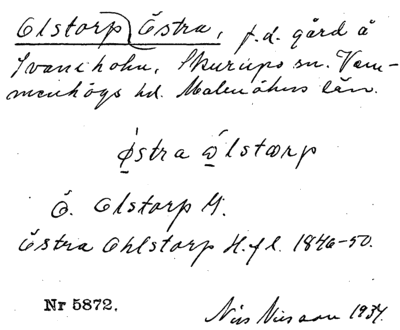 Olstorp Östra, f.d. gård å
Svaneholm, Skurups sn. Vem-
menhögs hd. Malmöhus län.
ǿstra ǿlstorp
Ö. Olstorp G.
Östra Ohlstorp H.f.l. 1846-50.
Nr 5872.
Nils Nilsson 1934.